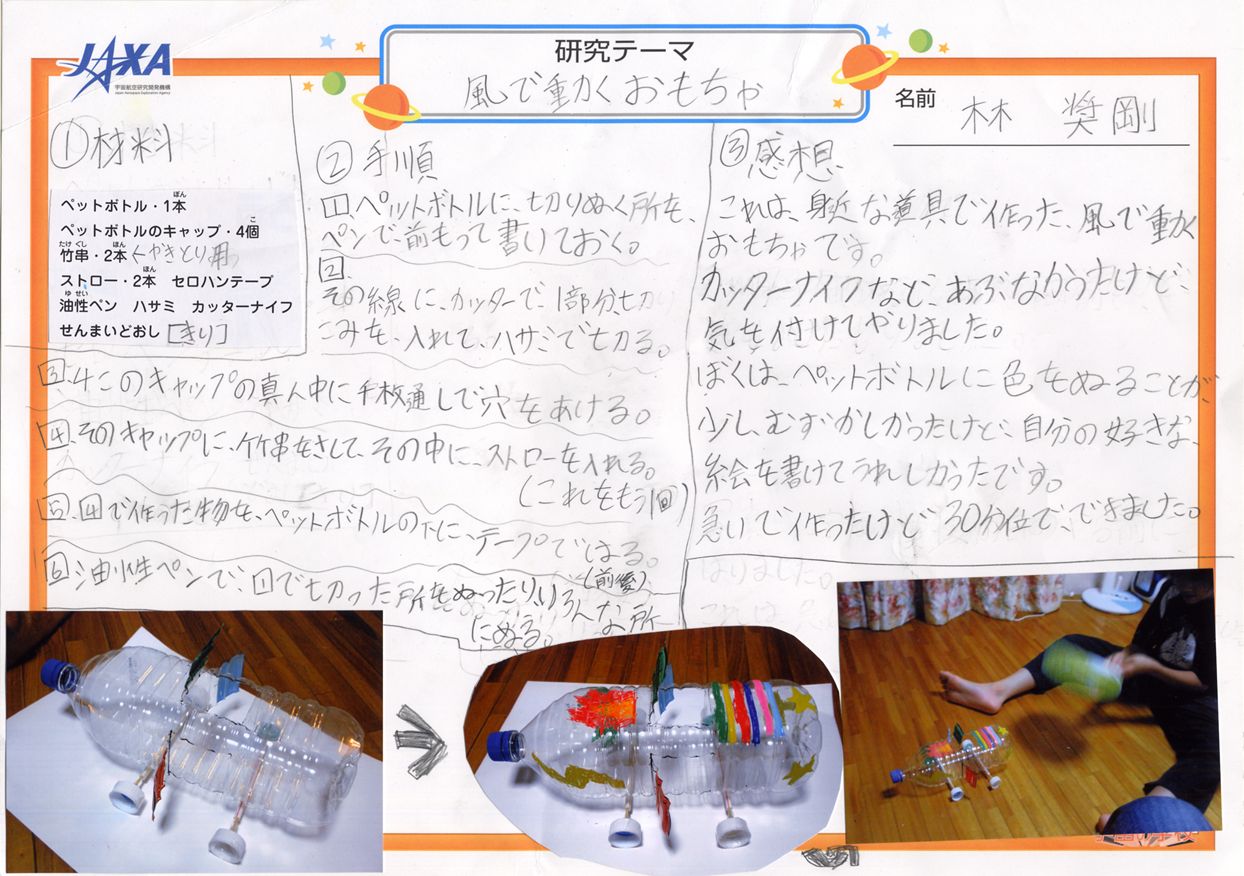 JAXA
宇宙航空研究開発機構
Japan Aerospace Exploration Agency
研究テーマ
風で動くおもちゃ
名前 林 奨剛
①材料
ペットボトル・1本
ペットボトルのキャップ・4個
竹串・2本←やきとり用。
ストロー・2本 セロハンテープ
油性ペン ハサミ カッターナイフ
せんまいどおし[きり]
②手順
1.ペットボトルに、切りぬく所を、
ペンで、前もって書いておく。
2.
その線に、カッターで、1部分切り
こみを、入れて、ハサミで切る。
3.4このキャップの真ん中に千枚通しで穴をあける。
4.そのキャップに、竹串をさして、その中に、ストローを入れる。
(これをもう1回)
5.4で作った物を、ペットボトルの下に、テープではる。
6.油性ペンで、1で切った所をぬったり(前後)、いろんな所
にぬる。
③感想
これは、身近な道具で作った、風で動く
おもちゃです。
カッターナイフなど、あぶなかったけど、
気を付けてやりました。
ぼくは、ペットボトルに色をぬることが、
少しむずかしかったけど、自分の好きな、
絵を書けてうれしかったです。
急いで作ったけど30分位で、できました。